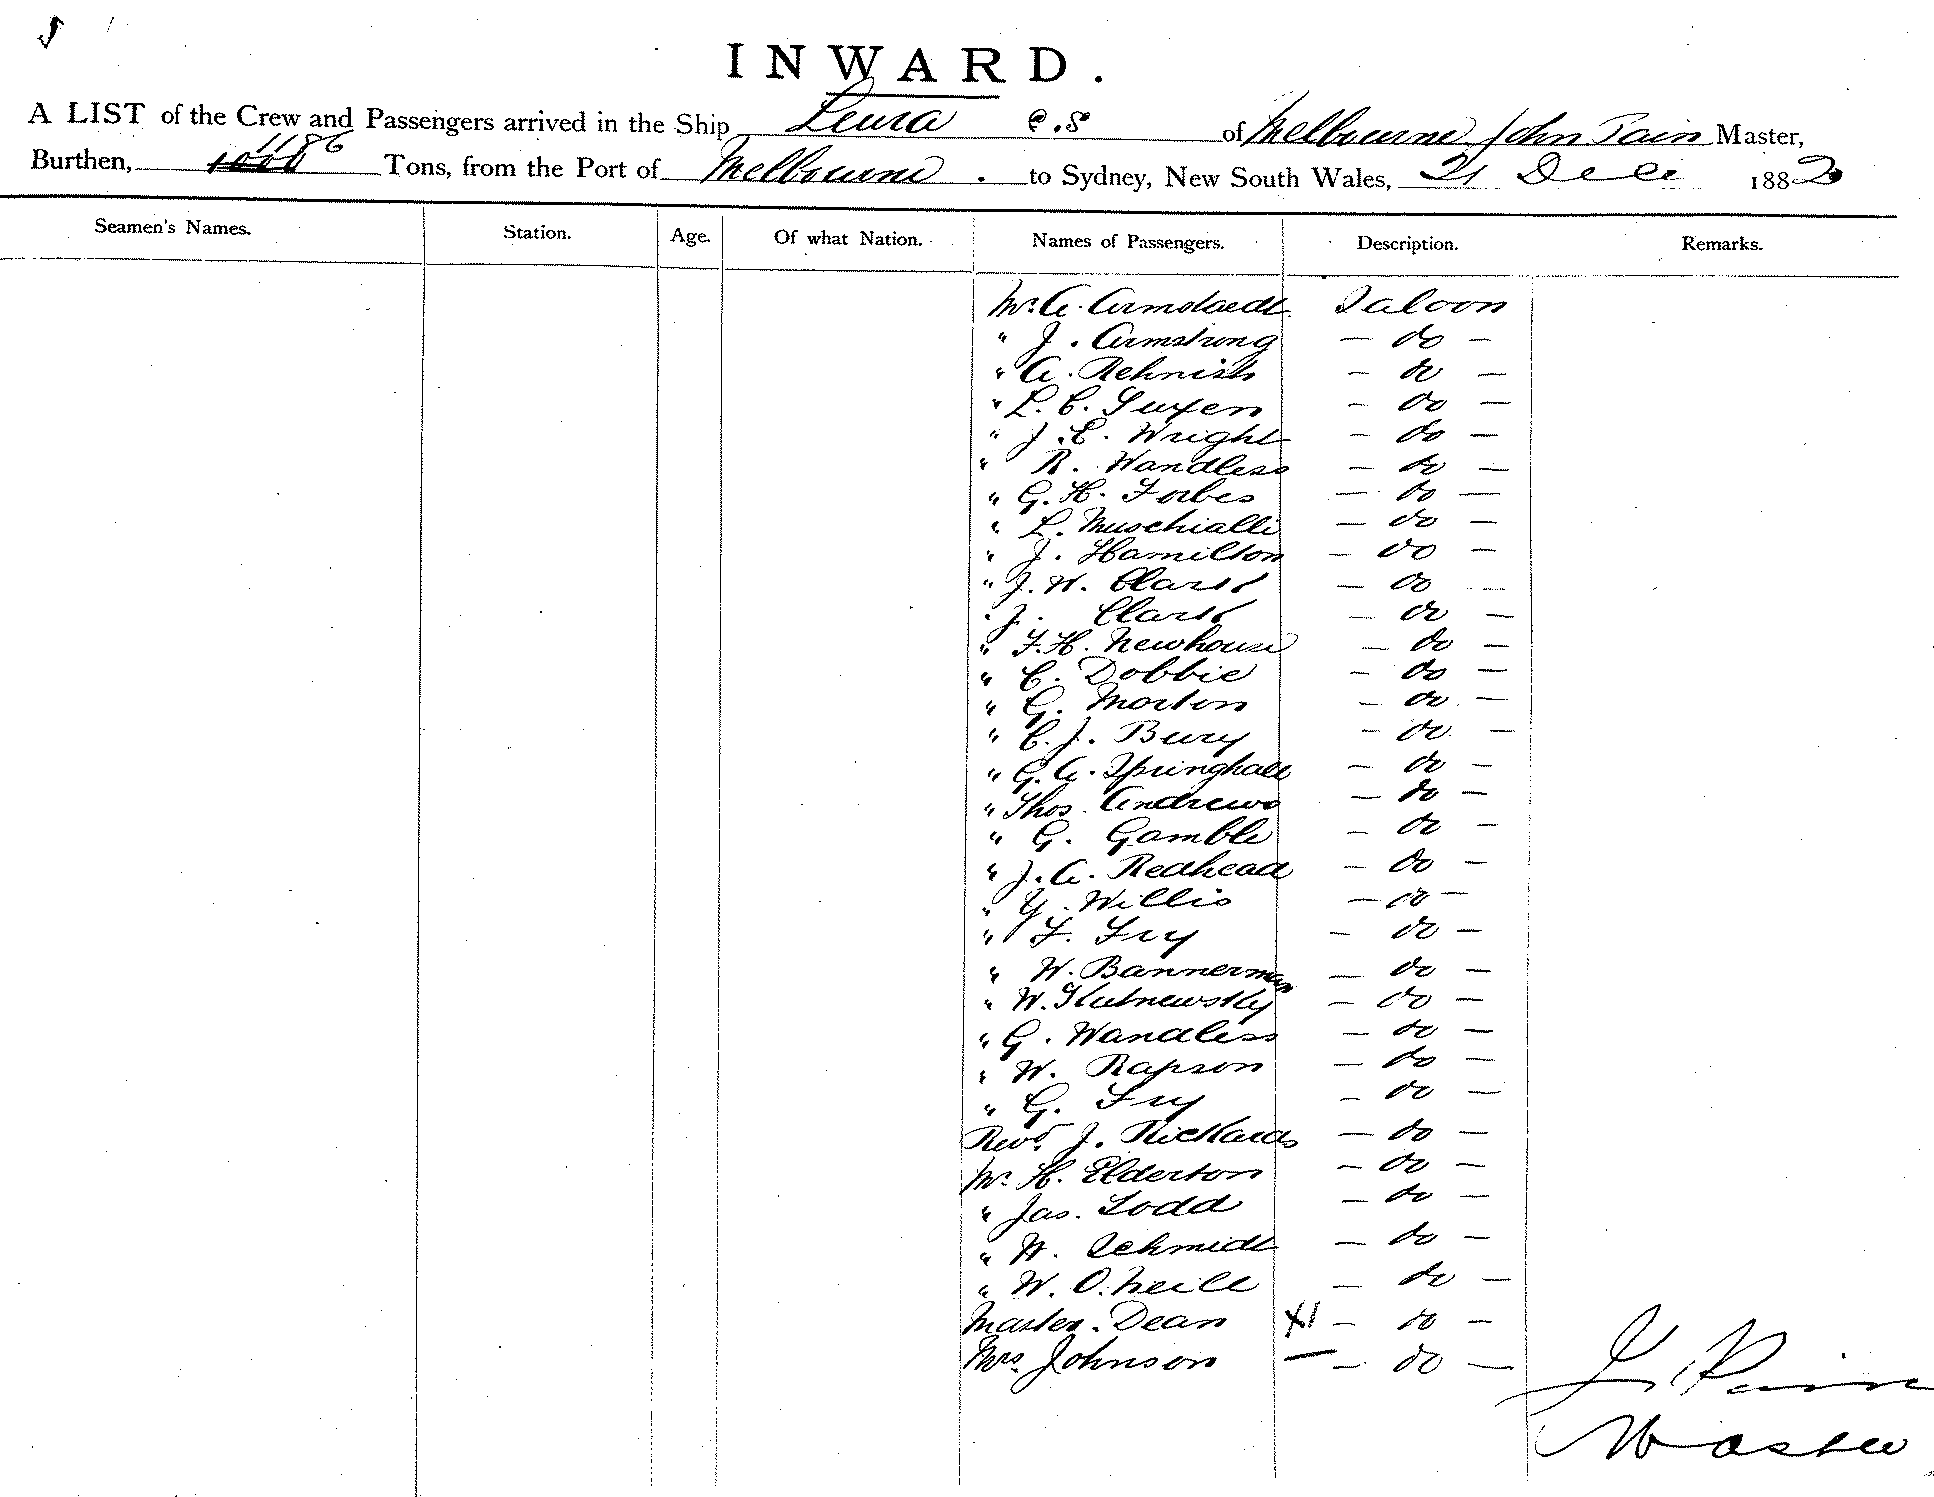 INWARD.
A LIST of the Crew and Passengers arrived in the Ship Leura s.s of Melbourne John Pain Master,
Burthen, 1186 Tons, from the Port of Melbourne. to Sydney, New South Wales, 21 Dec 1882
Seamen's Names. Station. Age. Of what Nation. Names of Passengers. Description. Remarks.
Mr. A. Armstaedt Saloon
" J. Armstrong — do —
" A. Rehnish — do —
" L. C. Luxen — do —
" J. C. Wright — do —
" R. Wandless — do —
" G. H. Forbes — do —
" L. Muschialli — do —
" J. Hamilton — do —
" J. W. Clark — do —
" J. Clark — do —
" F. H. Newhouse — do —
" C. Dobbie — do —
" G. Morton — do —
" C. J. Bury — do —
" G. A. Springhall — do —
" Thos. Andrews — do —
" G. Gamble — do —
" J. A. Redhead — do —
" Y. Willis — do —
" F. Fry — do —
" W. Bannerman — do —
" W. Kutnewsky — do —
" G. Wandless — do —
" W. Rapson — do —
" G. Fry — do —
Revd. J. Rickards — do —
Mr. H. Elderton — do —
" Jas. Todd — do —
" W. Schmidt — do —
" W. O.Neill — do —
Master. Dean — do —
Mrs. Johnson — do —
J. Pain
Master